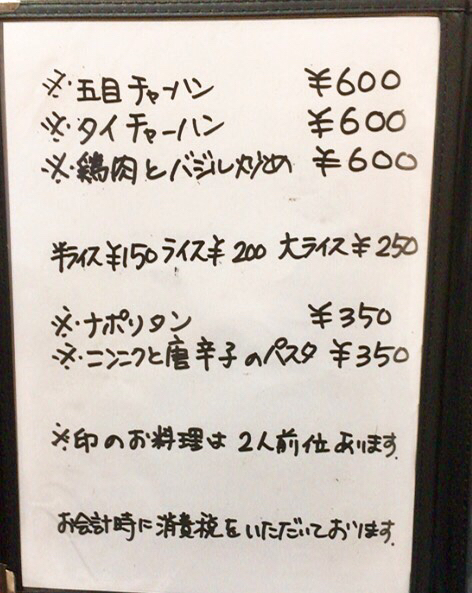 ※・五目チャーハン ¥600
※・タイチャーハン ¥600
※・鶏肉とバジル炒め ¥600
半ライス¥150 ライス¥200 大ライス¥250
※・ナポリタン ¥350
※・ニンニクと唐辛子のパスタ ¥350
※印のお料理は2人前位あります。
お会計時に消費税をいただいております。